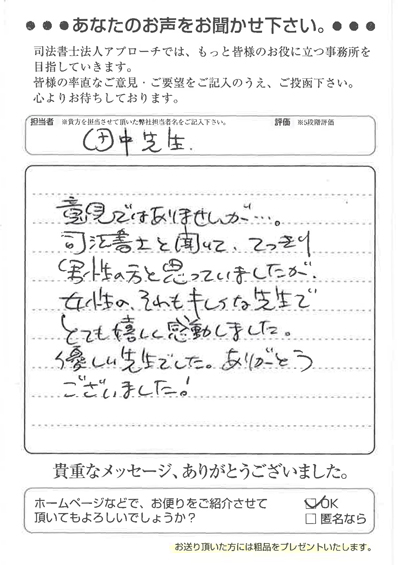 ●●●あなたのお声をお聞かせ下さい。●●●
司法書士法人アプローチでは、もっと皆様のお役に立つ事務所を
目指していきます。
皆様の率直なご意見・ご要望をご記入のうえ、ご投函下さい。
心よりお待ちしております。
担当者 ※貴方を担当させて頂いた弊社担当者名をご記入下さい。 評価 ※5段階評価
田中先生.
意見ではありませんが…。
司法書士と聞いて、てっきり
男性の方と思っていましたが、
女性の、それもキレイな先生で
とても嬉しく感動しました。
優しい先生でした。ありがとう
ございました!
貴重なメッセージ、ありがとうございました。
ホームページなどで、お便りをご紹介させて
頂いてもよろしいでしょうか?
☑OK
□匿名なら
お送り頂いた方には粗品をプレゼントいたします。